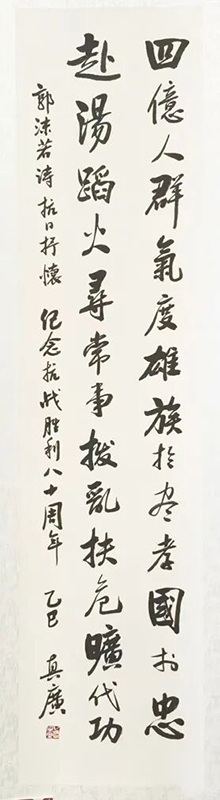 四億人群氣度雄族於尽孝國於忠
赴湯蹈火尋常事撥亂扶危曠代功
郭沫若诗 抗日抒懷 纪念抗战胜利八十周年 乙巳 真廣